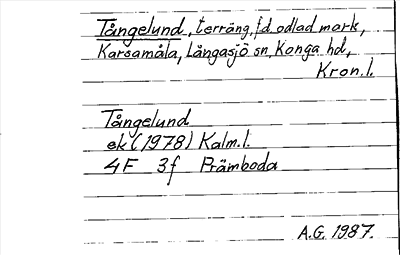 Tångelund, terräng, f.d. odlad mark,
Karsamåla, Långasjö sn, Konga hd,
Kron.l.
Tångelund
ek (1978) Kalm.l.
4F 3f Främboda
A.G. 1987.